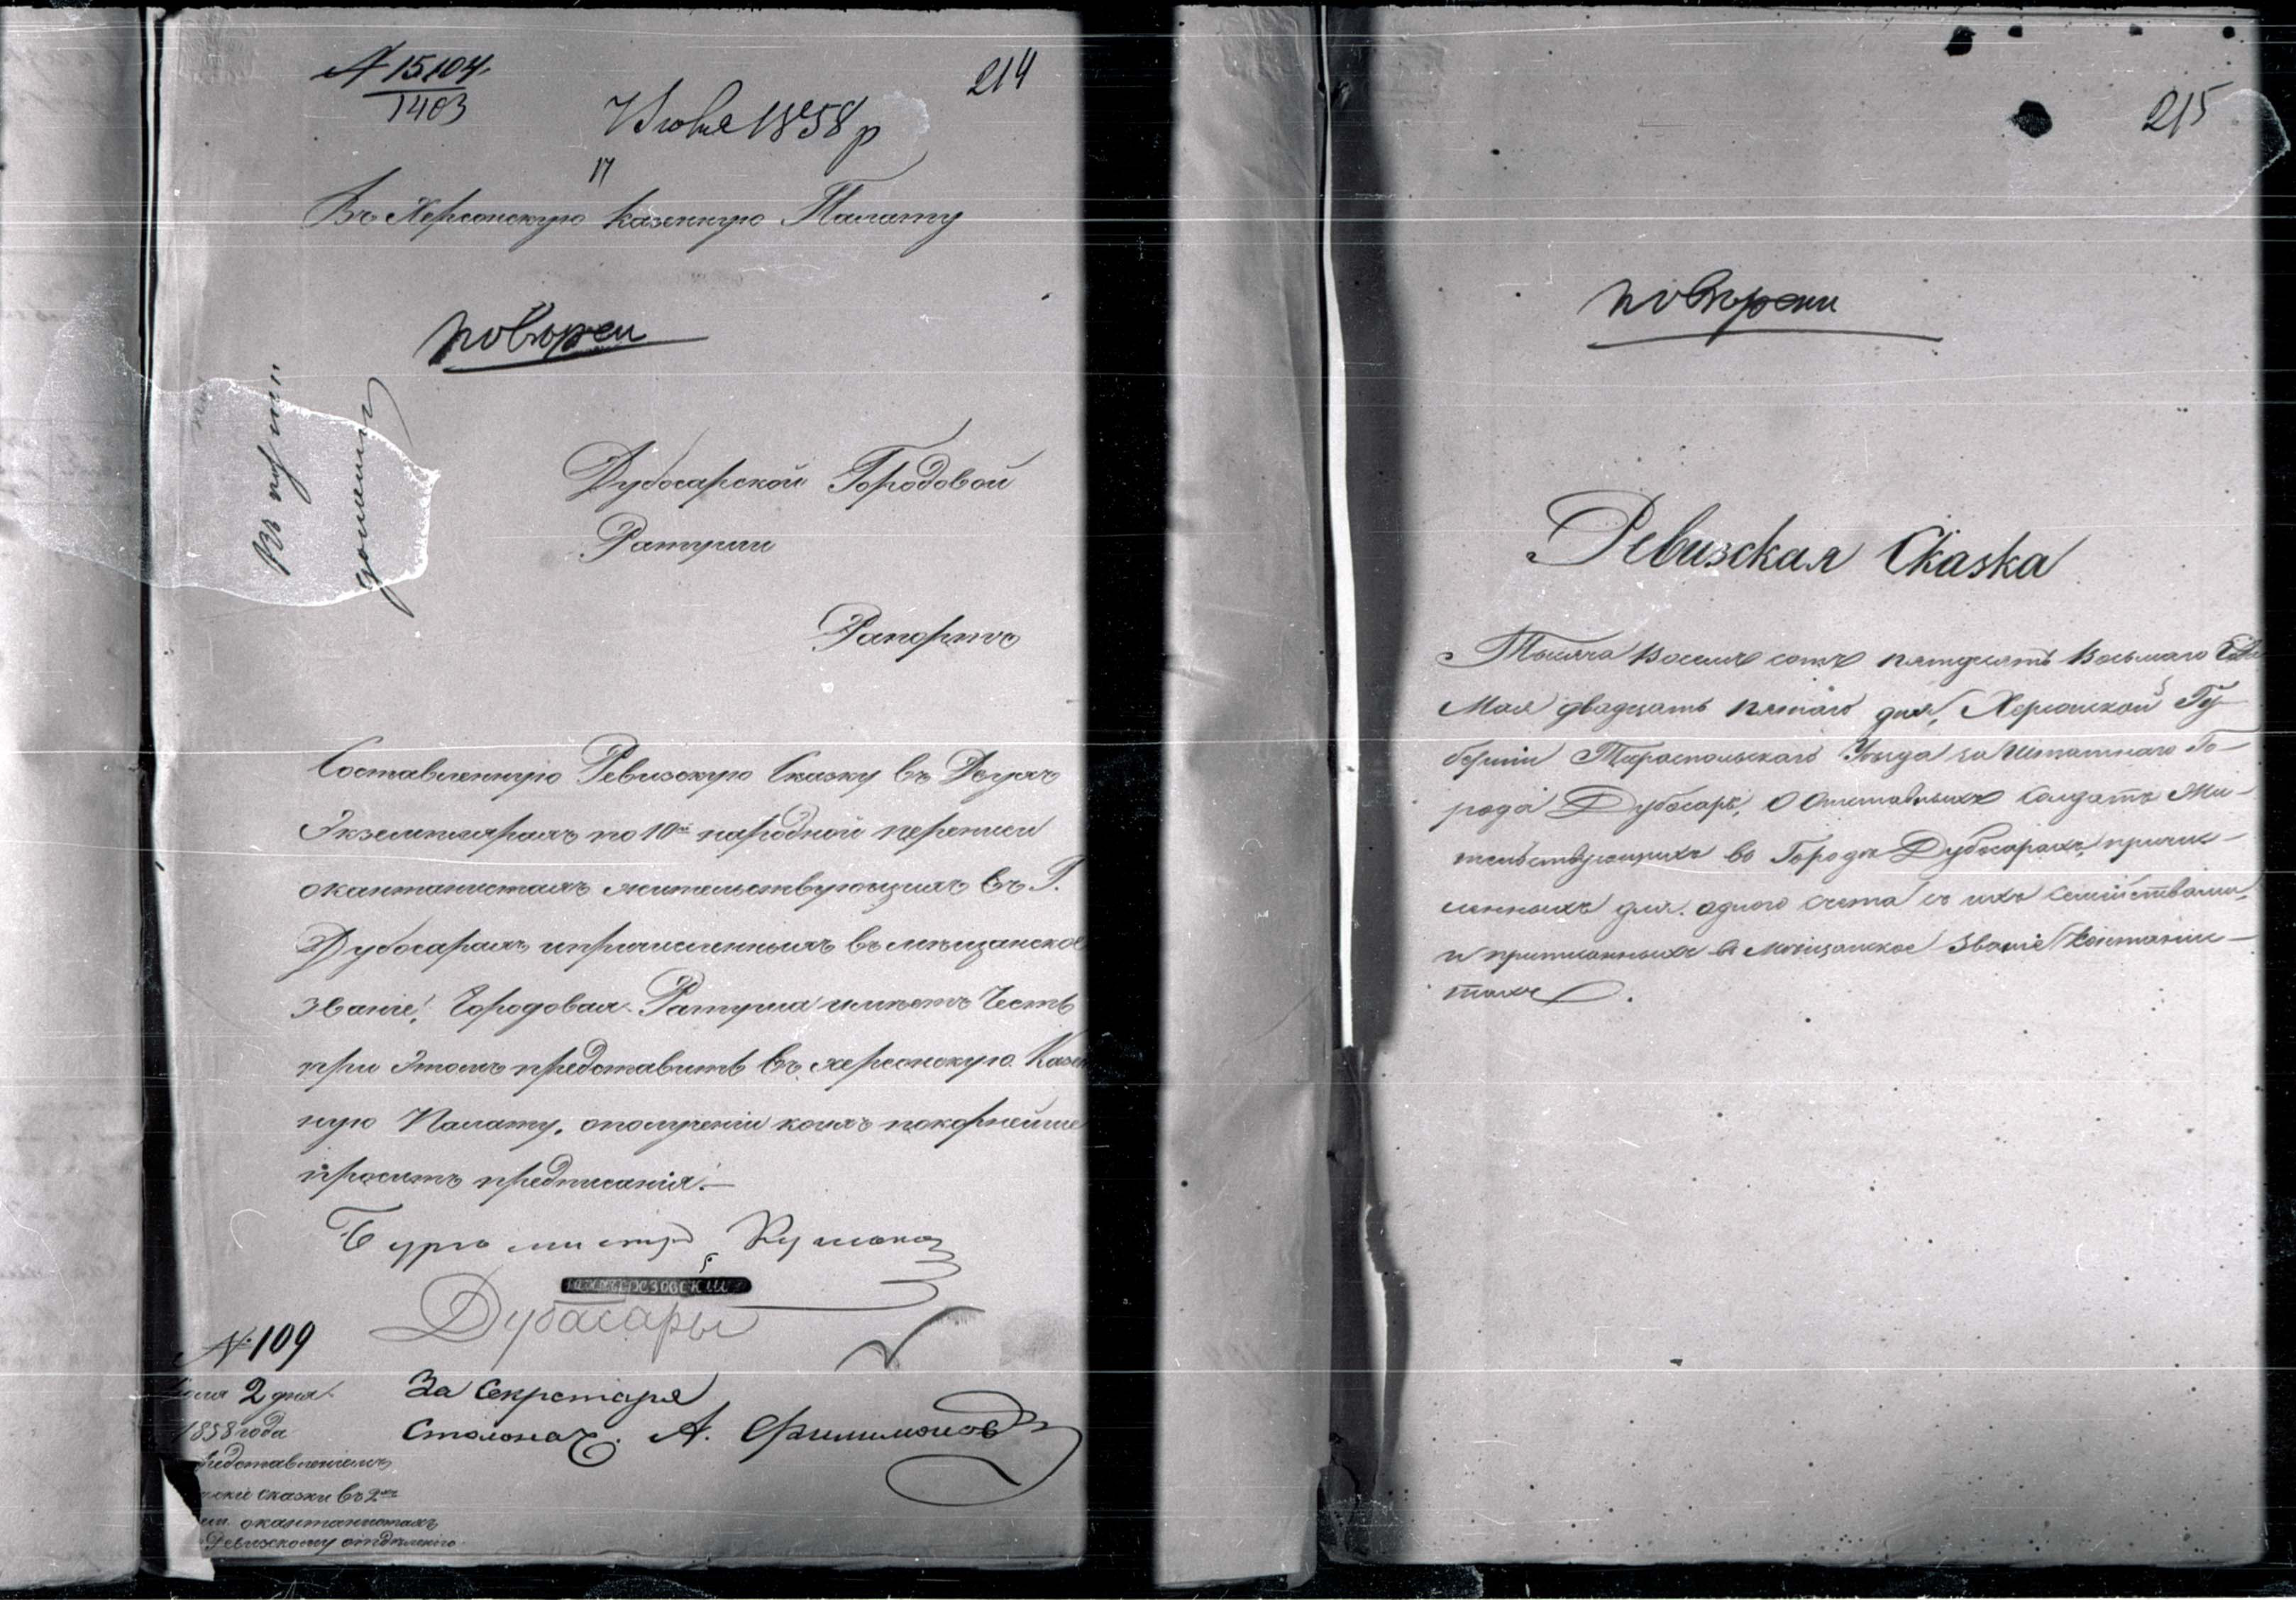 № 15104.
1403
214
Июня 1858 р
17
Въ Херсонскую Казенную Палату
повторен
Въ
Дубосарской Городовой
Ратуши
Рапортъ
Составленную Ревизскую Сказку въ Двухъ
Экземплярахъ по 10й народной переписи
окантонистахъ жительствующихъ въ Г.
Дубосарахъ ипричисленныхъ въ мѣщанское
званіе, Городовая Ратуша имѣетъ Честь
при Этомъ представить въ херсонскую Казен
ную Палату, ополученіи коихъ покорнейше
проситъ предписанія.—
Бургомистръ
Дубасары
№ 109
2 дня
1858 года
За Секретаря
Столонач. А. Филимонов
представленіемъ
сказки въ 2хъ
окантонистахъ
Ревизскому отдѣленію
215
повторени
Ревизская Сказка
Тысяча Восемь сотъ пятдесятъ Восьмаго
Мая двадцать пятаго дня, Херсонской Гу-
берніи Тираспольскаго Уѣзда заштатнаго Го-
рода Дубосаръ, О Отставныхъ Солдатъ Жи-
тельствующихъ во Городѣ Дубосарахъ, причис-
ленныхъ для одного счета съ ихъ Семѣйствами,
и приписанныхъ въ Мѣщанское Званіе Кантонис-
тахъ.